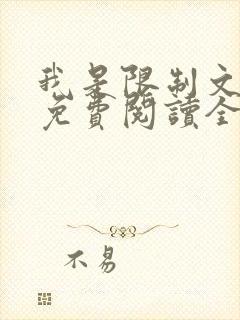 我是限制文
免費閱讀全
不易